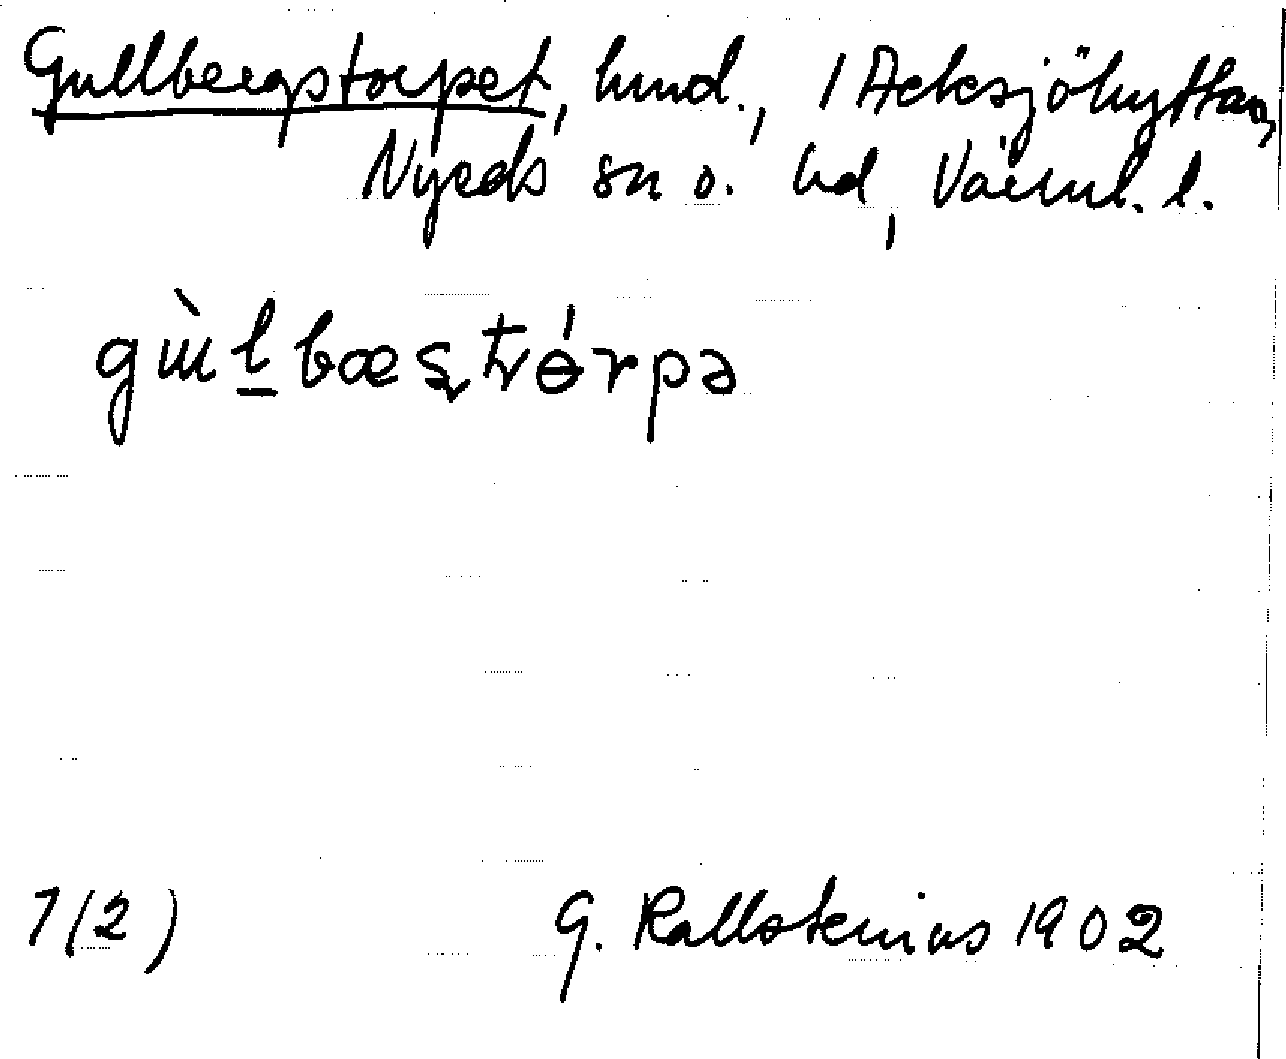 Gullbergstorpet, hmd., 1 Acksjöhyttan,
Nyeds sn o. hd, Värml. l.
gɯ̀l̠bæʂtɵ́rpə
1(2) G. Kallstenius 1902